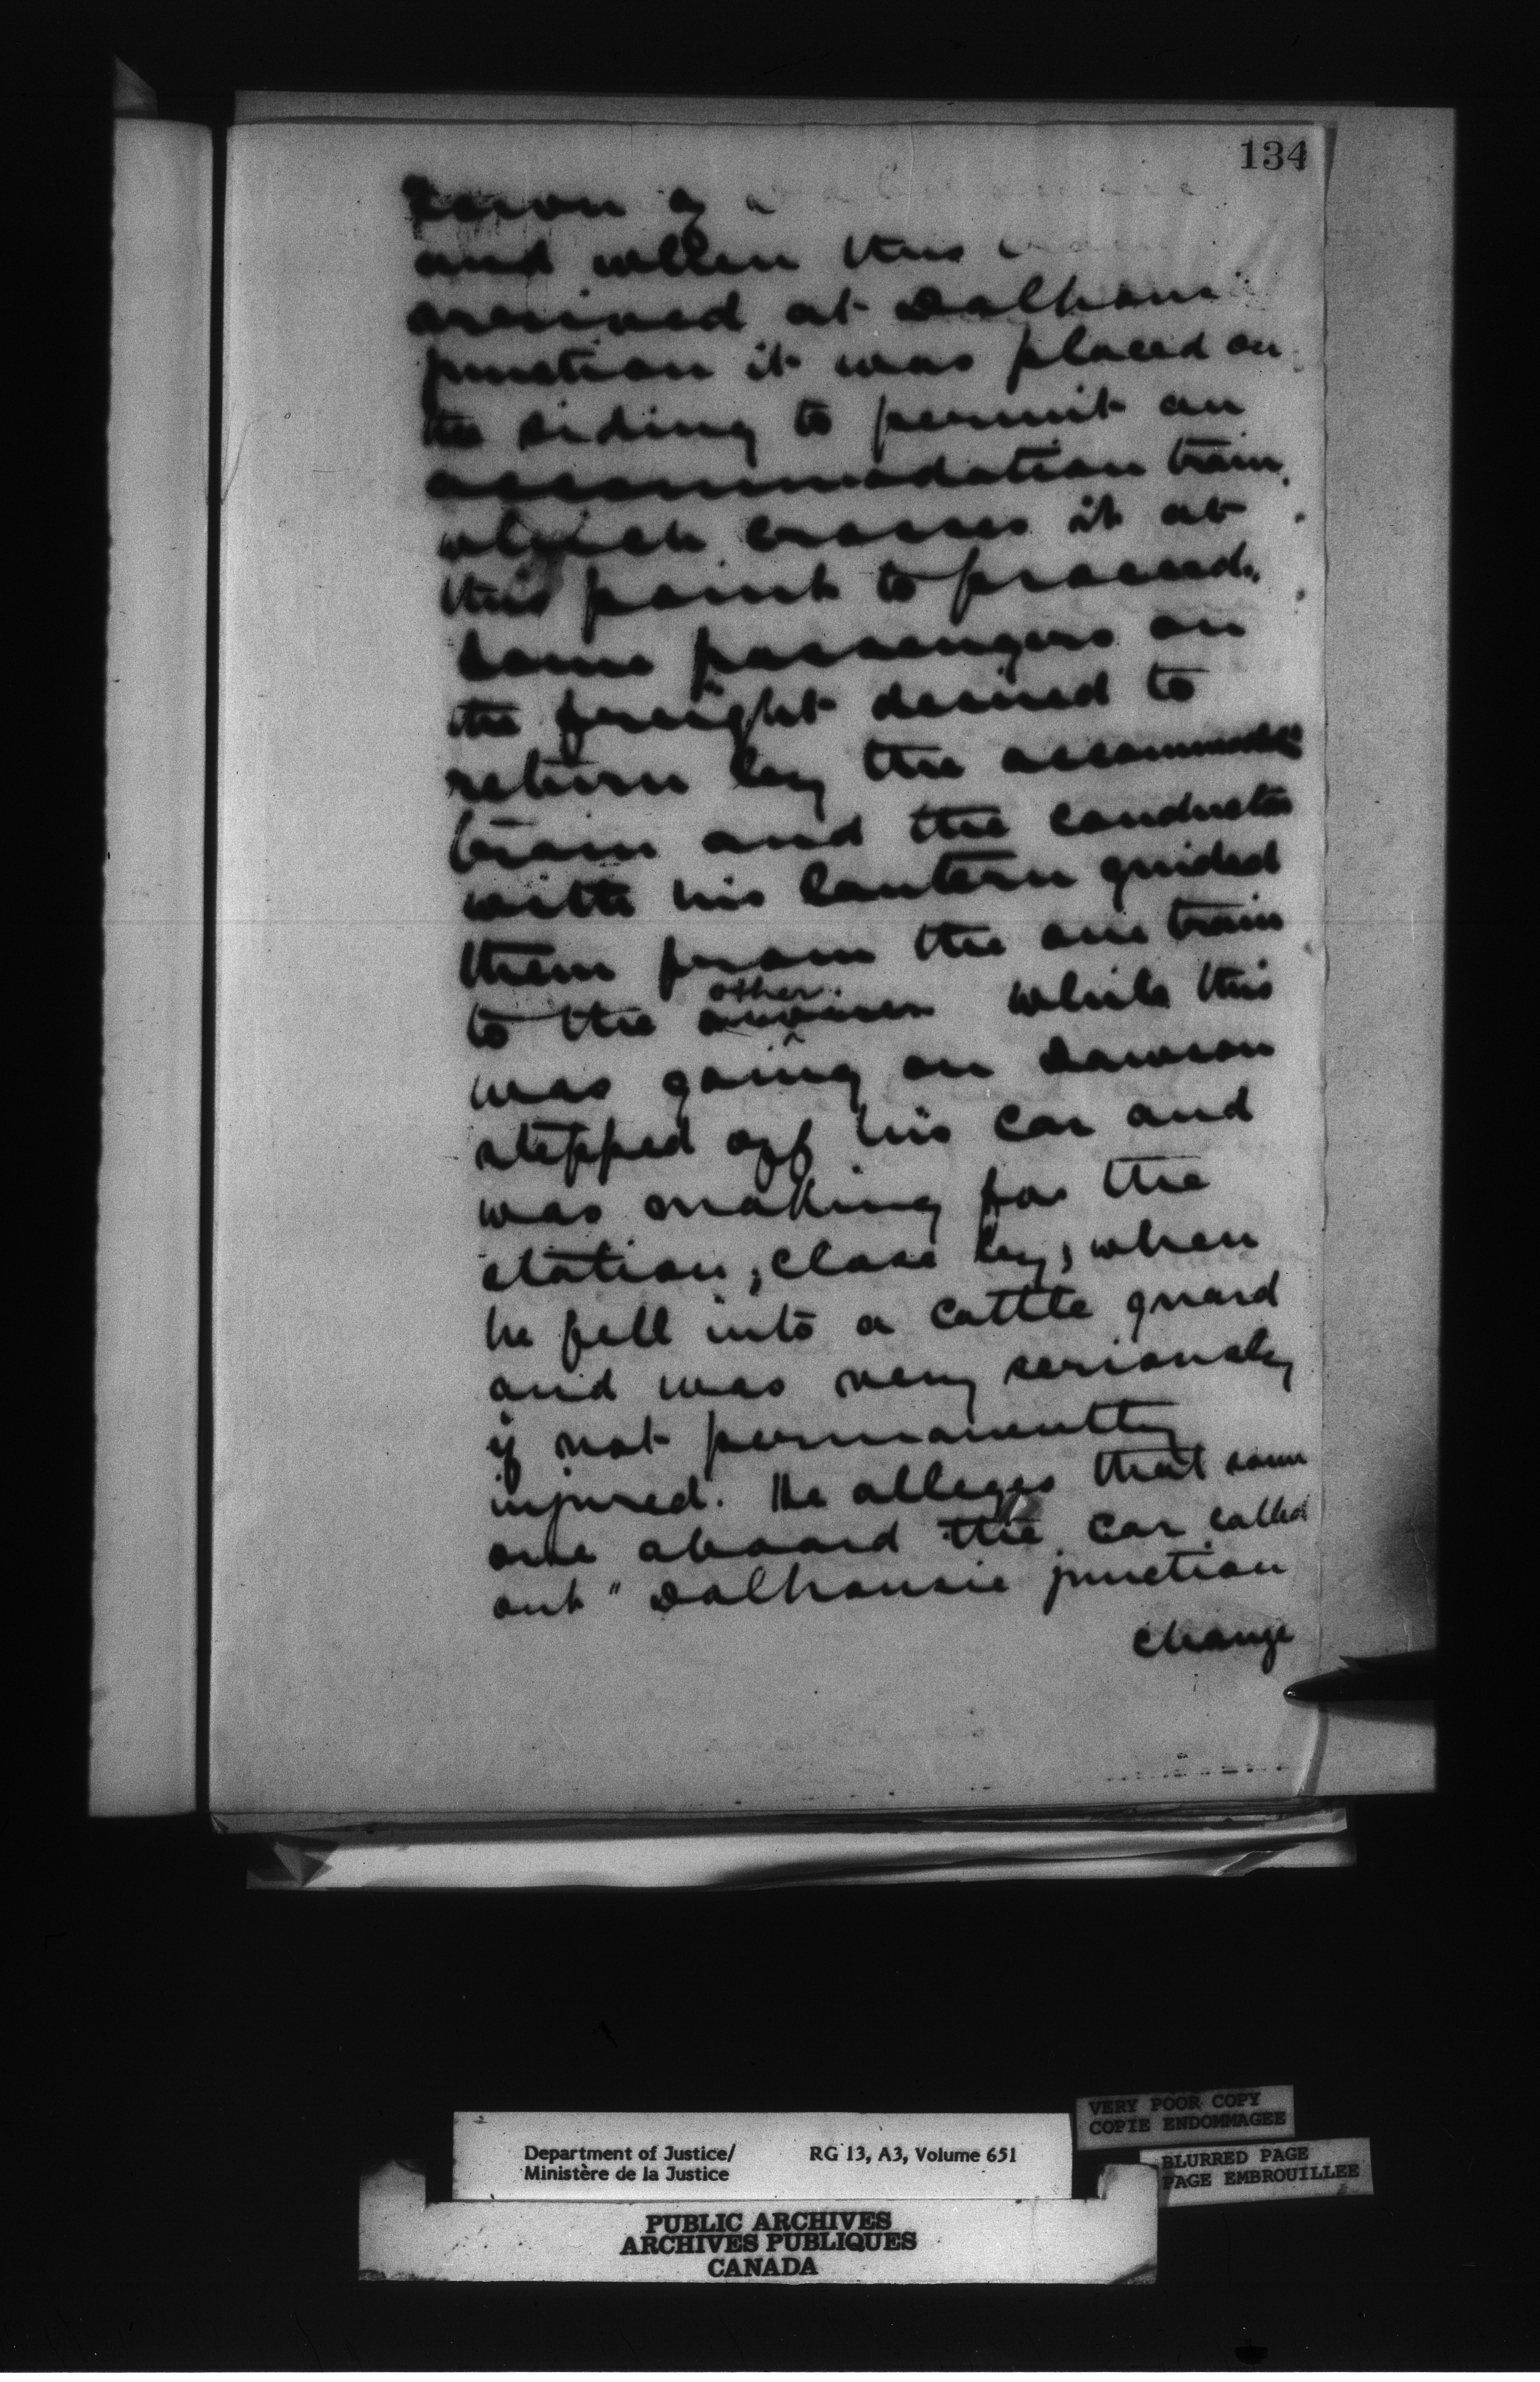 134
and when this
arrived at Dalhousie
junction it was placed on
the siding to permit an
accommodation train,
which crosses it at
this point to proceed.
Some passengers on
the freight desired to
return by the accommodation
train and the conductor
with his lantern guided
them from the one train
to the other. While this
was going on Dawson
stepped off his car and
was making for the
station, close by, when
he fell into a cattle guard
and was very seriously
if not permanently
injured. He alleges that some
one aboard the car called
out "Dalhousie junction
change
VERY POOR COPY
COPIE ENDOMMAGEE
Department of Justice/ RG 13, A3, Volume 651
Ministère de la Justice
BLURRED PAGE
PAGE EMBROUILLEE
PUBLIC ARCHIVES
ARCHIVES PUBLIQUES
CANADA